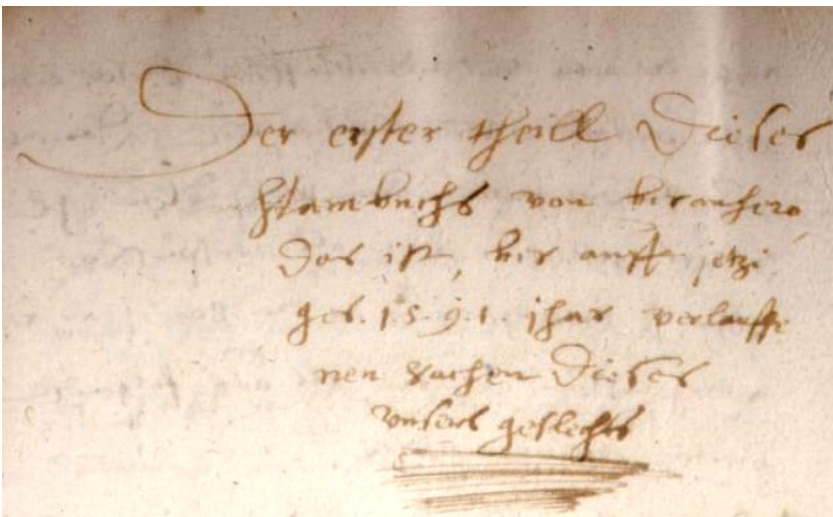 Der erster theill Dieses
stambuchs von beranhero,
Das ist, bis auff jetzi
ges. 1.5.9.1. jhar verlauffe
nen sachen Dieses
unsers geslechts